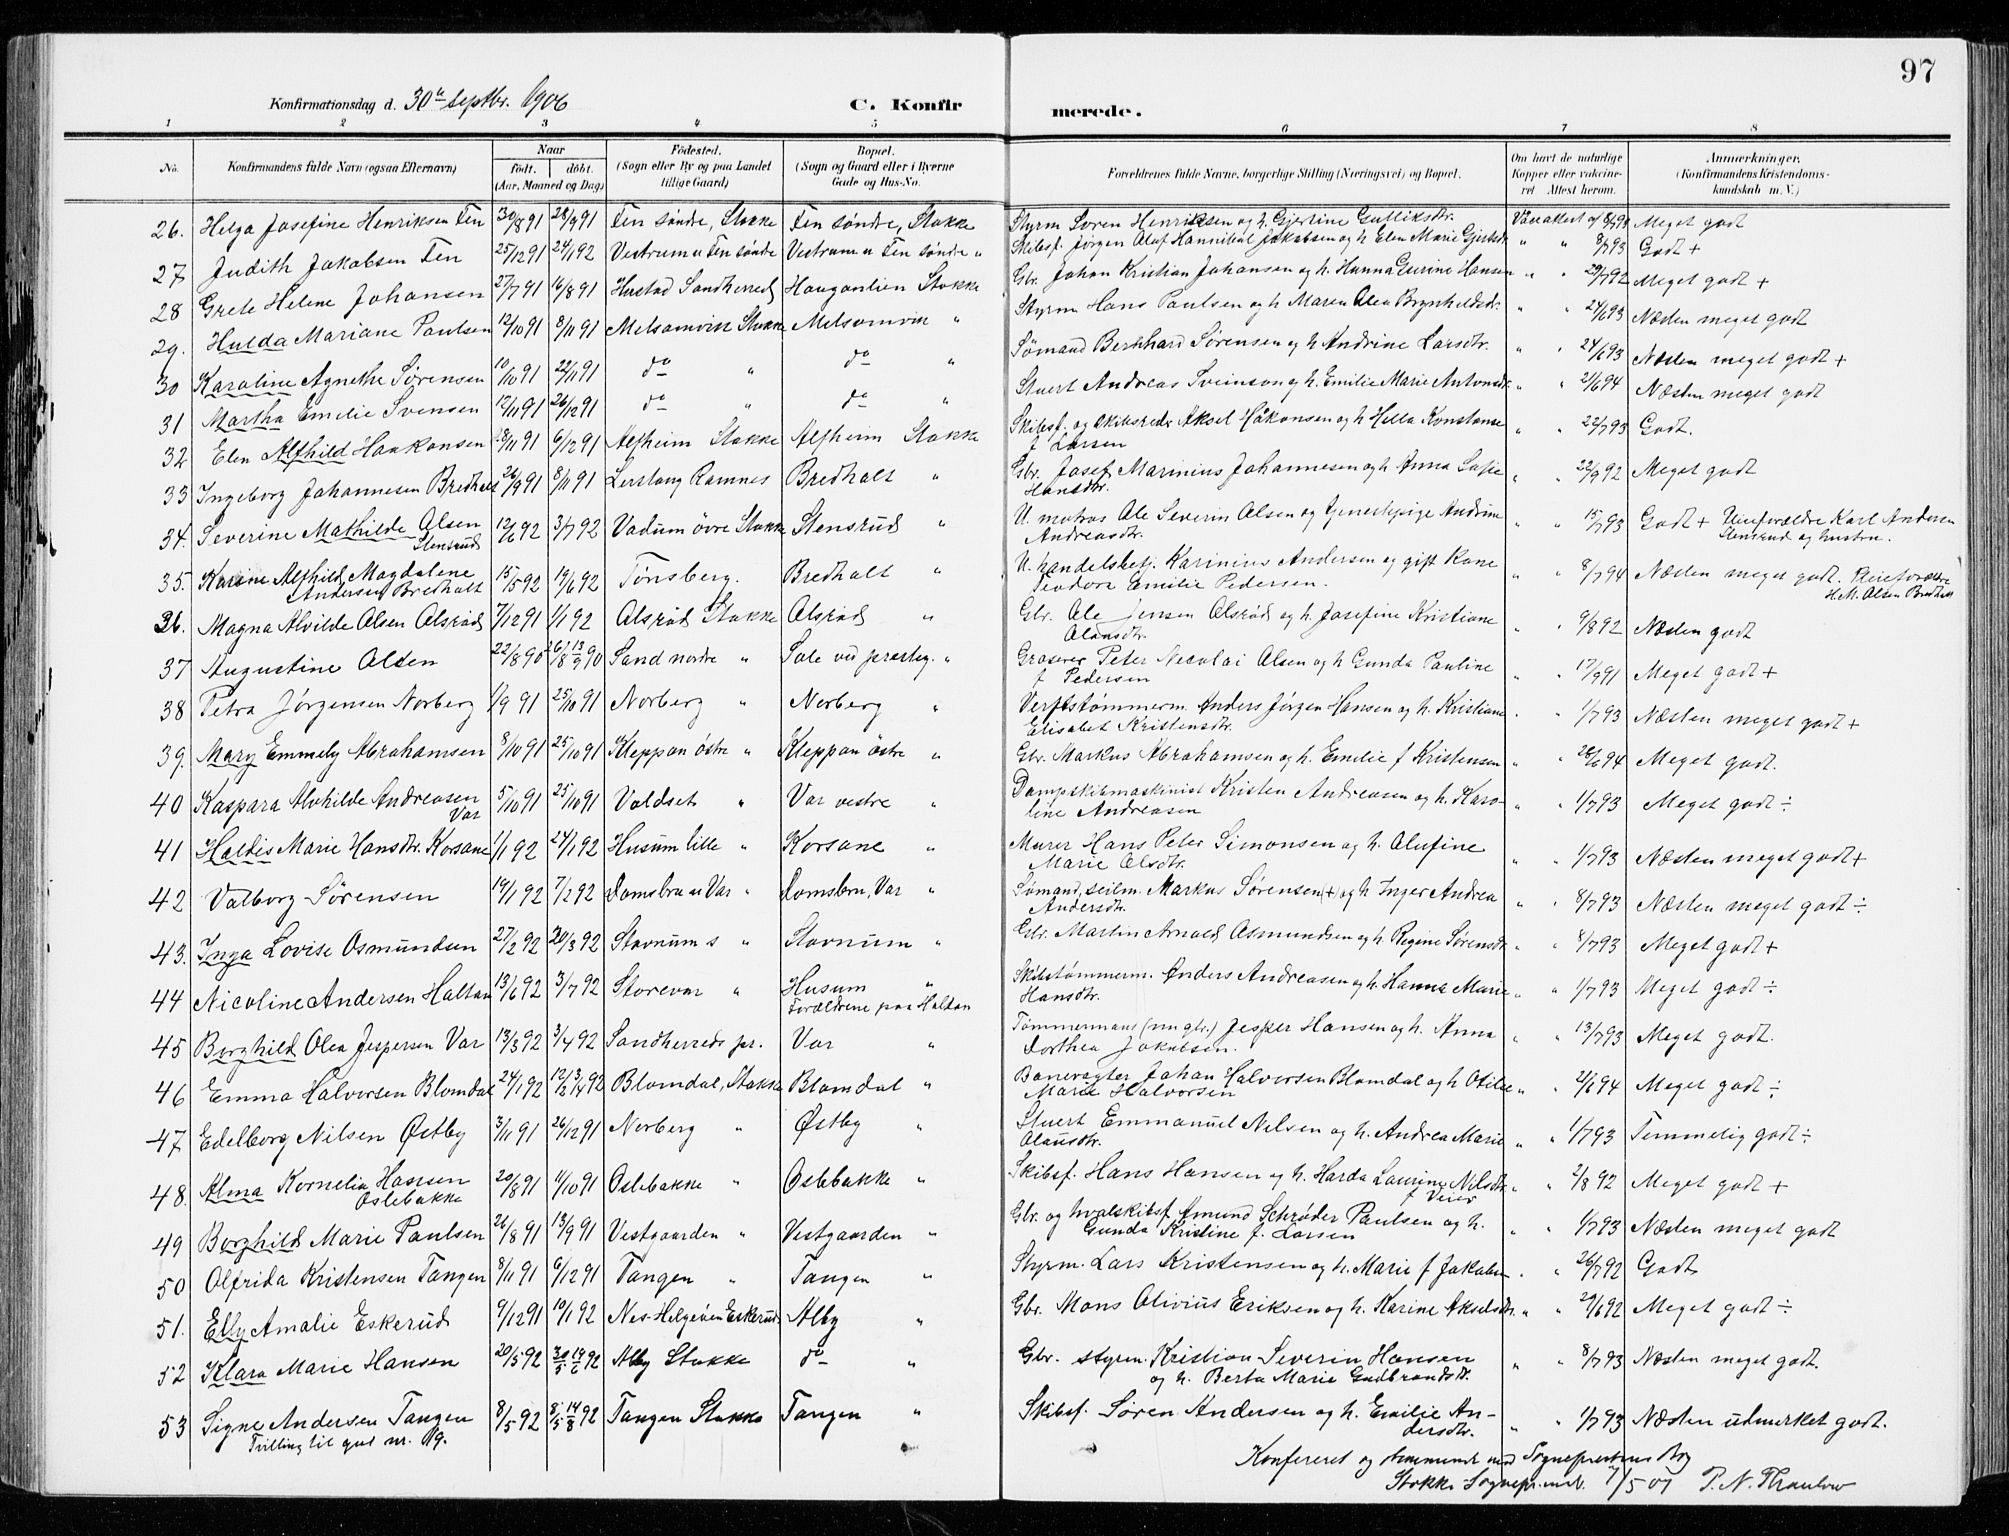 97
Konfirmationsdag d. 30te septbr. 1906
C. Konfirmerede.
1 2 3 4 5 6 7 8
No. Konfirmandens fulde Navn (ogsaa Efternavn) Naar født. døbt. (Aar, Maaned og Dag) Fødested. (Sogn eller By og paa Landet tillige Gaard) Bopæl. (Sogn og Gaard eller i Byerne Gade og Hus-No. Forældrenes fulde Navne, borgerlige Stilling (Næringsvei) og Bopæl. Om havt de naturlige Kopper eller vakcineret Attest herom. Anmærkninger. (Konfirmandens Kristendomskundskab m. V.)
26. Helga Josefine Henriksen Fen 30/8 91 28/9 91 Fen søndre, Stokke Fen søndre, Stokke Styrm Søren Henriksen og h. Gjertine Gulliksdtr. Vaxattest af 8/7 93 Meget godt
27 Judith Jakobsen Fen 25/12 91 24/1 92 Vestrum u Fen søndre Vestrum u Fen søndre " Skibsf. Jørgen Oluf Hannibal Jakobsen og h Elen Marie Gjertsdtr " " 8/7 93 Godt +
28 Grete Helene Johansen 27/7 91 16/8 91 Sandherred Haugantien Stokke Gbr. Johan Kristian Johansen og h. Hanna Gurine Hansen " " 29/7 92 Meget godt +
29. Hulda Mariane Paulsen 12/10 91 8/11 91 Melsomvik Stokke Melsomvik " Styrm Hans Paulsen og h Maren Olea Brynhildsdr. " " 24/6 93 Næsten meget godt
30 Karoline Agnethe Sørensen 10/10 91 22/11 91 do " do " Sømand Bernhard Sørensen og h Andrine Larsdtr. " " 24/6 93 Næsten meget godt +
31 Martha Emilie Svensen 12/11 91 26/12 91 do " do " Stuert Andreas Sveinson og h. Emilie Marie Antonsdtr " " 21/6 94 Næsten meget godt
32 Elen Alfhild Haakonsen 18/11 91 6/12 91 Alfheim Stokke Alfheim Stokke Skibsf. og skibsreder Aksel Håkonsen og h Hella Konstanse f Larsen " " 22/7 93 Godt.
33 Ingeborg Johannesen Bredholt 26/9 91 8/11 91 Lerstang Ramnes Bredholt " Gbr. Josef Marinius Johannesen og h Anna Sofie Hansdtr. " " 22/9 92 Meget godt
34. Severine Mathilde Olsen Stensrud 12/6 92 3/7 92 Vadum øvre Stokke Stensrud " U. matros Ole Severin Olsen og tjenestepige Andrine Andreasdtr. " " 15/7 93 Godt + Pleieforældre Karl Andersen Stensrud og hustru.
35. Karine Alfhild Magdalene Andersen Bredholt 15/5 92 19/6 92 Tønsberg. Bredholt " U. handelsbetj. Karinius Andersen og gift kone Teodora Emilie Pedersen. " " 8/7 94 Næsten meget godt. Pleieforældre H.M. Olsen Bredholt
36. Magna Alvilde Olsen Olsrød 7/12 91 1/1 92 Olsrød Stokke Olsrød " Gbr. Ole Jensen Olsrød og h. Josefine Kristiane Olausdtr. " " 9/8 92 Næsten godt
37 Augustine Olsen 22/8 90 26/8 13/9 90 Sand nordre " Sole ved præsteg. " Groserer Peter Nicolai Olsen og h Gunda Pauline f Pedersen " " 17/9 91 Meget godt +
38 Petra Jørgensen Norberg 1/9 91 25/10 91 Norberg " Norberg " Verftstømmerm. Anders Jørgen Hansen og h. Kristiane Elisabet Kristensdtr. " " 1/7 93 Næsten meget godt +
39. Mary Emmely Abrahamsen 8/10 91 25/10 91 Kleppan østre " Kleppan østre " Gbr. Markus Abrahamsen og h. Emilie f Kristensen " " 28/6 94 Meget godt.
40 Kaspara Alvhilde Andreasen Var 5/10 91 25/10 91 Valdset " Var vestre " Dampskibmaskinist Kristen Andreasen og h. Karoline Andreasen " " 1/7 93 Meget godt ÷
41 Haldis Marie Hansdtr. Korsane 1/1 92 24/1 92 Husum lille " Korsane " Murer Hans Peter Simonsen og h. Olufine Marie Olsdtr. " " 1/7 93 Næsten meget godt +
42 Valborg Sørensen 19/1 92 7/2 92 Domsbru u Var " Domsbru, Var " Sømand, seilm. Markus Sørensen (+) og h Inger Andrea Andersdtr. " " 8/7 93 Næsten meget godt ÷
43. Inga Lovise Osmundsen 27/2 92 20/3 92 Stavnum s " Stavnum " Gbr. Martin Arnold Osmundsen og h. Regine Sørensdtr " " 8/7 93 Meget godt +
44 Nicoline Andersen Haltan 13/6 92 3/7 92 Storevar " Husum " Forældrene paa Haltan Skibstømmerm. Anders Andreasen og h. Hanna Marie Hansdtr. " " 1/7 93 Meget godt ÷
45 Borghild Olea Jespersen Var 13/3 92 3/4 92 Sandherreds pr. Var " Tømmermand (nu gbr.) Jesper Hansen og h. Anna Dorthea Jakobsen. " " 13/7 93 Meget godt.
46 Emma Halvorsen Blomdal 24/1 92 12/2 3/4 92 Blomdal, Stokke Blomdal " Banevogter Johan Halvorsen Blomdal og h Otilie Marie Halvorsen " " 21/6 94 Meget godt ÷
47. Edelborg Nilsen Østby 3/11 91 26/12 91 Norberg " Østby " Stuert Emmanuel Nilsen og h. Andrea Marie Olausdtr. " " 1/7 93 Temmelig godt ÷
48. Alma Kornelia Hansen Oslebakke 20/8 91 11/10 91 Oslebakke " Oslebakke " Skibsf. Hans Hansen og h. Harda Laurine Nilsdtr. f Veier " " 2/8 92 Meget godt +
49 Borghild Marie Paulsen 26/8 91 13/9 91 Vestgaarden " Vestgaarden " Gbr. og hvalskibsf. Amund Schrøder Paulsen og h. Gunda Kristine f. Larsen " " 1/7 93 Næsten meget godt
50 Olfrida Kristensen Tangen 8/11 91 6/12 91 Tangen " Tangen " Styrm. Lars Kristensen og h. Marie f Jakobsen " " 26/7 92 Godt
51. Elly Amalie Eskerud 9/12 91 10/1 92 Nes-Helgeøen Eskerud Alby " Gbr. Mons Olivius Eriksen og h. Karine Akseldtr. " " 29/6 92 Meget godt ÷
52 Klara Marie Hansen 20/5 92 30/5 19/6 92 Alby Stokke do " Gbr. styrm. Kristian Severin Hansen og h. Berta Marie Gudbrandsdtr. " " 8/7 93 Næsten meget godt.
53 Signe Andersen Tangen 8/5 92 8/5 14/8 92 Tangen Stokke Tangen " Skibsf. Søren Andersen og h. Emilie Andersdtr. " " 1/7 93 Næsten udmerket godt.
Tvilling til gut nr. 19.
Konfereret og stemmende med Sogneprestens Bog
Stokke Sogneprembd. 7/5 07 P. N. Thraulow